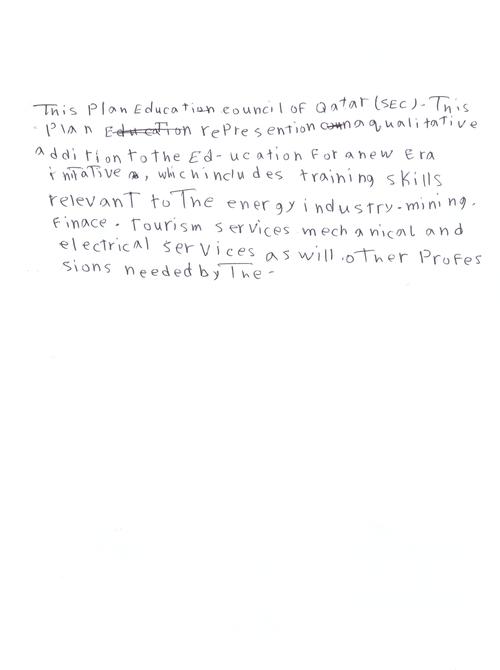 This Plan Education council of Qatar (SEC)- This
Plan Education represention a qualitative
addition to the Ed-ucation for a new Era
initative, which includes training skills
relevant to The energy industry-mining.
Finace. Tourism services mechanical and
electrical services as will .other Profes
sions needed by The-